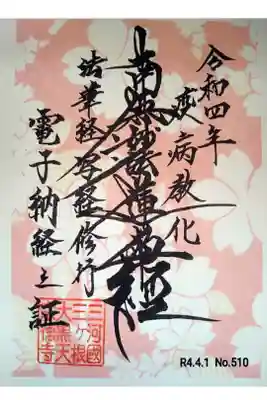 令和四年
疫病教化
南無妙法蓮華経
法華経写経修行
電子納経之証
三河國
三ヶ根
大黒天
R4.4.1 No.510